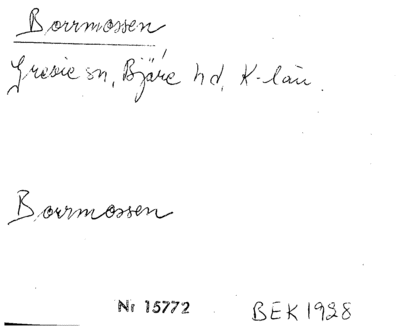 Borrmossen
Grevie sn, Bjäre hd, K-län.
Borrmossen
Nr 15772 BEK 1928